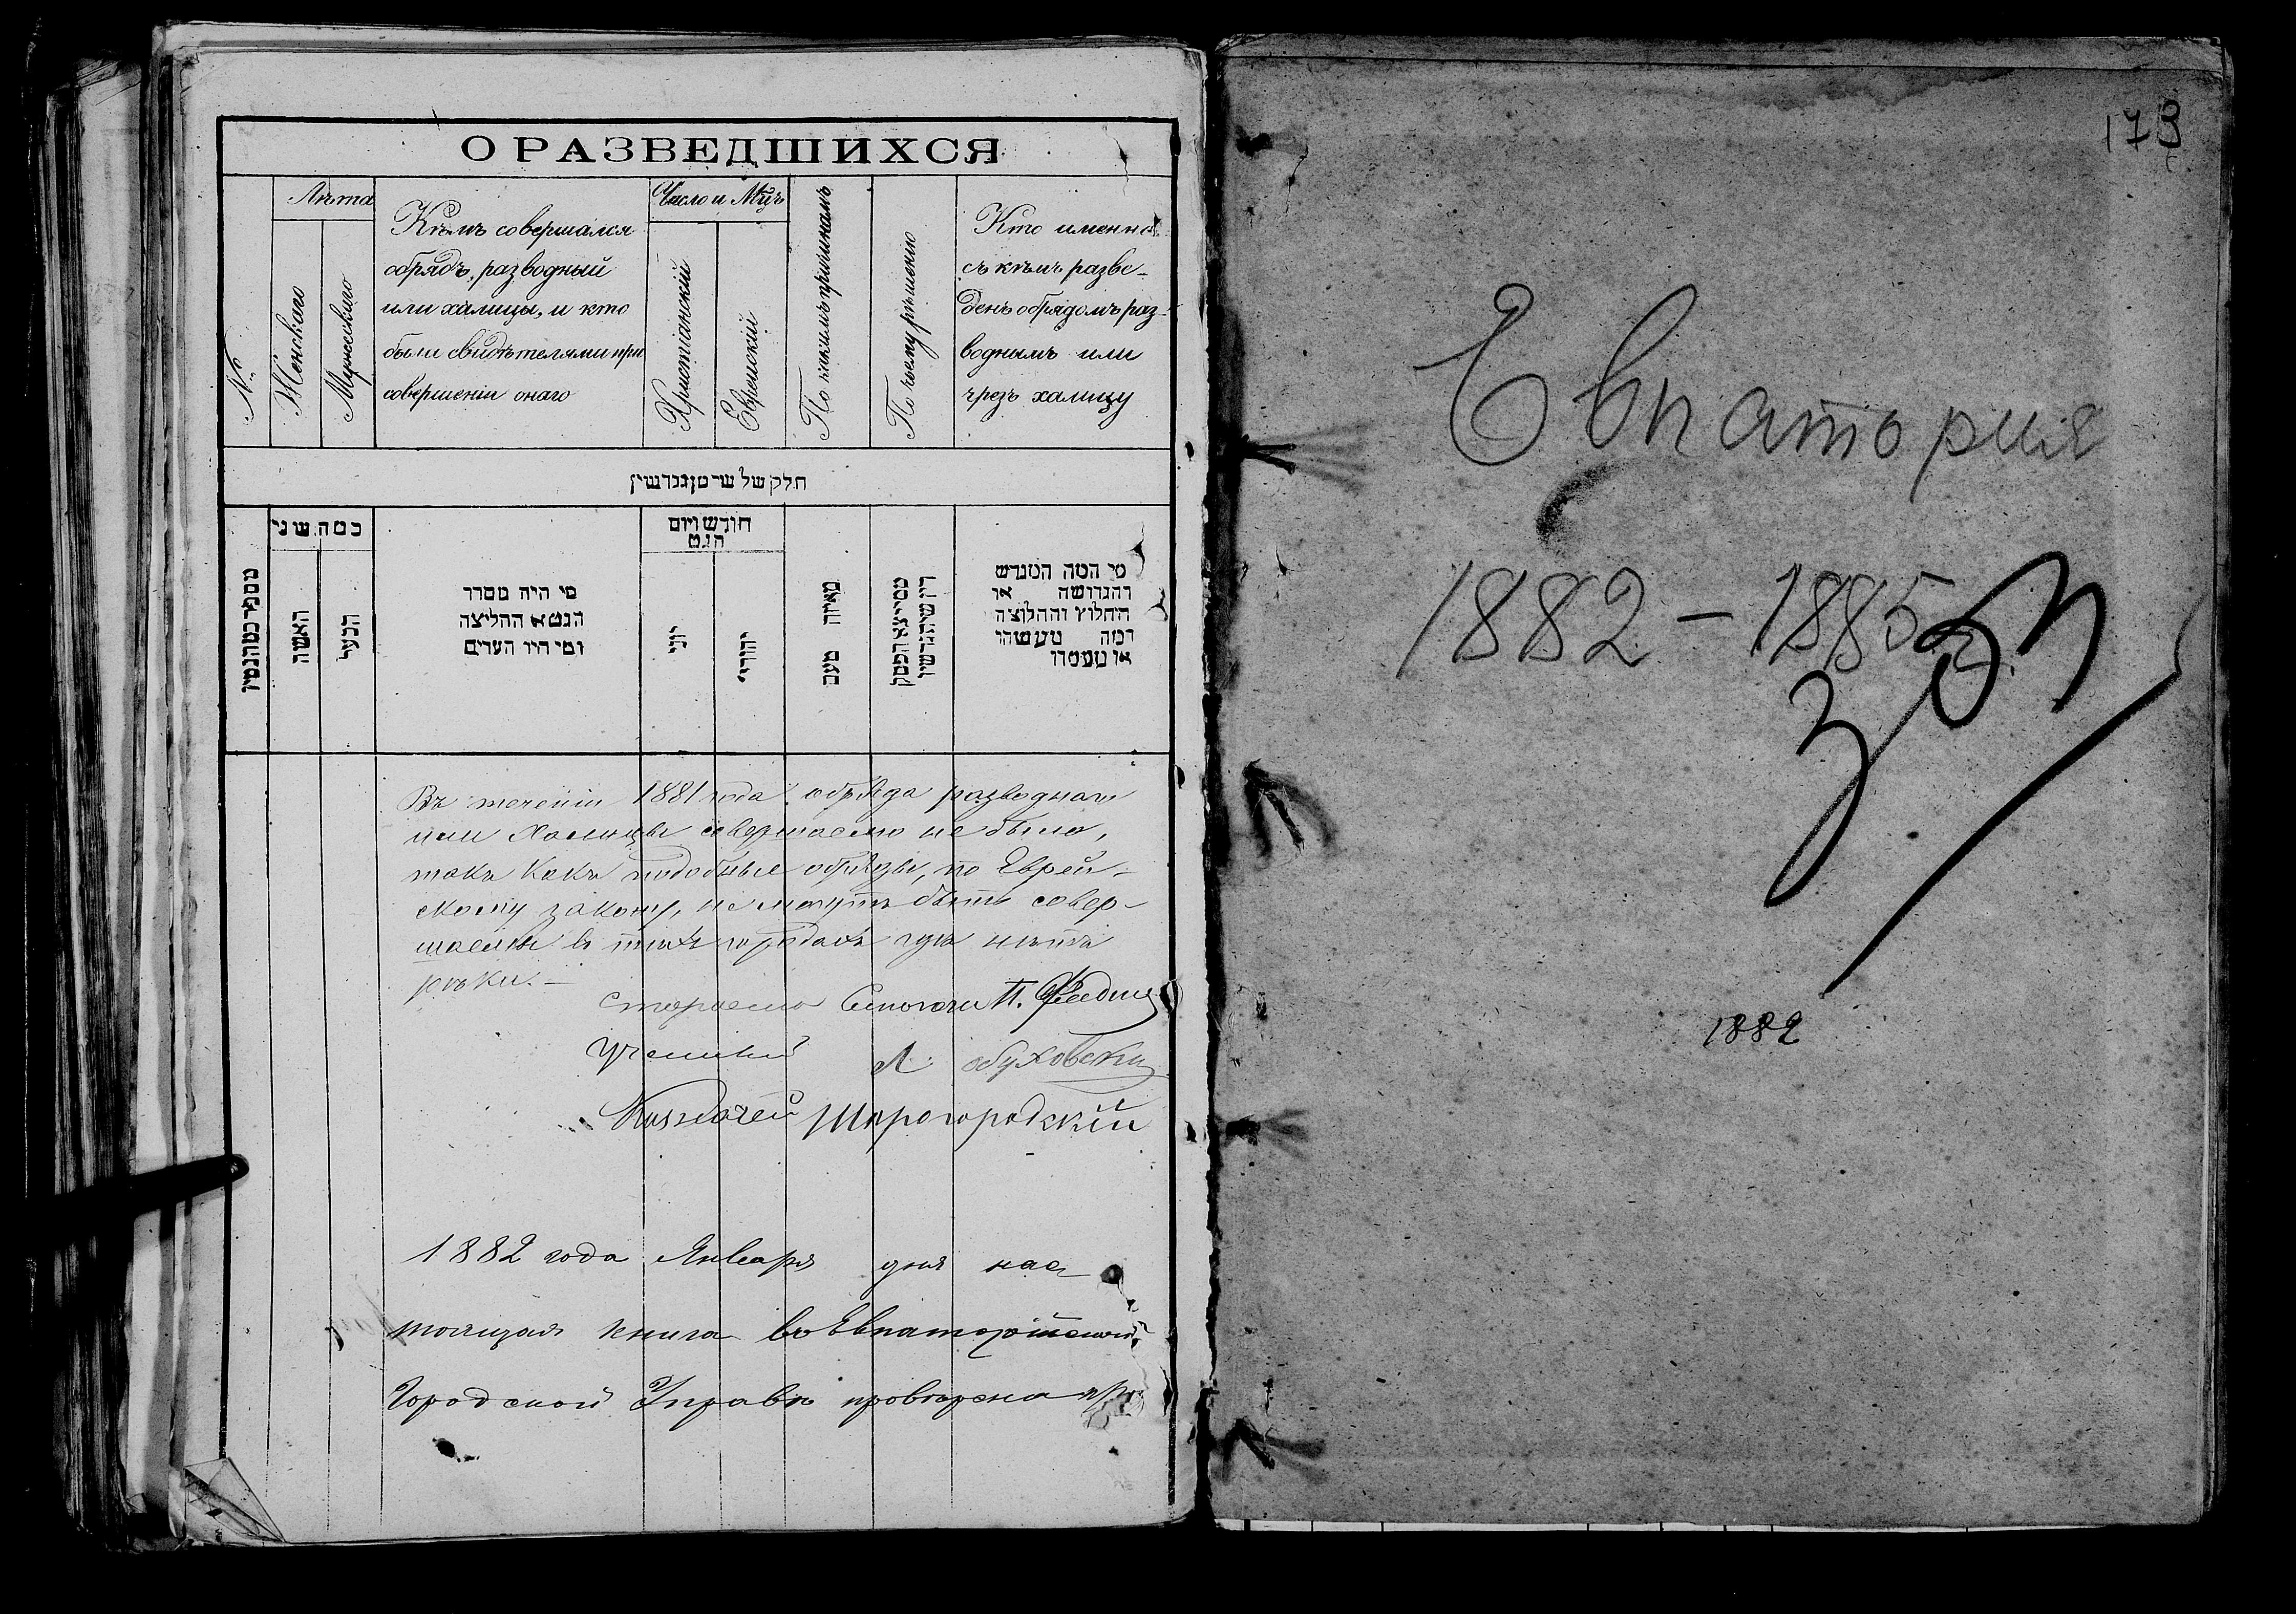 О РАЗВЕДШИХСЯ
№
Лѣта
Женскаго
Мужескаго
Кѣмъ совершался
обрядъ разводный
или халицы, и кто
были свидѣтелями при
совершеніи онаго
Число и Мцъ
Христіанскій
Еврейскій
По какимъ причинамъ
По чьему рѣшенію
Кто именно
съ кѣмъ разве-
денъ обрядомъ раз-
воднымъ или
чрезъ халицу
חלק של שרטן גרושין
כמה שני
האשה
הבעל
מי היה מסדר
הגט או החליצה
ומי היו העדים
חודש ויום
הגט
יוני
יהודי
מאיזה טעם
מי המה המגרש
והגרושה או
החלוץ והחלוצה
Въ теченіи 1881 года обряда разводнаго
или Халицы совершаемо не было,
такъ какъ подобные обряды, по Еврей-
скому закону, не могутъ быть совер-
шаемы въ тѣхъ городахъ гдѣ нѣтъ
рѣки.-
Староста Синагоги П.
Ученый Л. Обуховскій
Казначей Шарогородскій
1882 года Января дня нас
тоящая книга въ Евпаторійской
Городской Управѣ провѣрена
179
Евпатория
1882-1885
1882